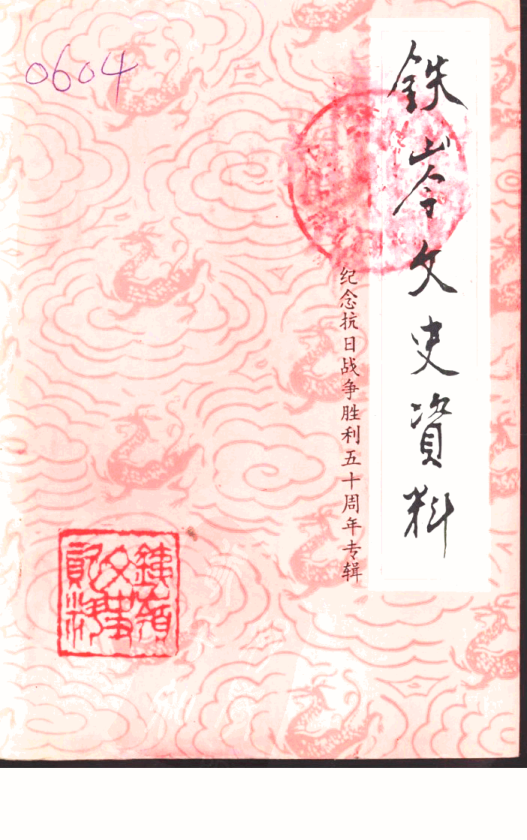 0604
鉄岺文史資料
纪念抗日战争胜利五十周年专辑
鉄嶺
文史
資料